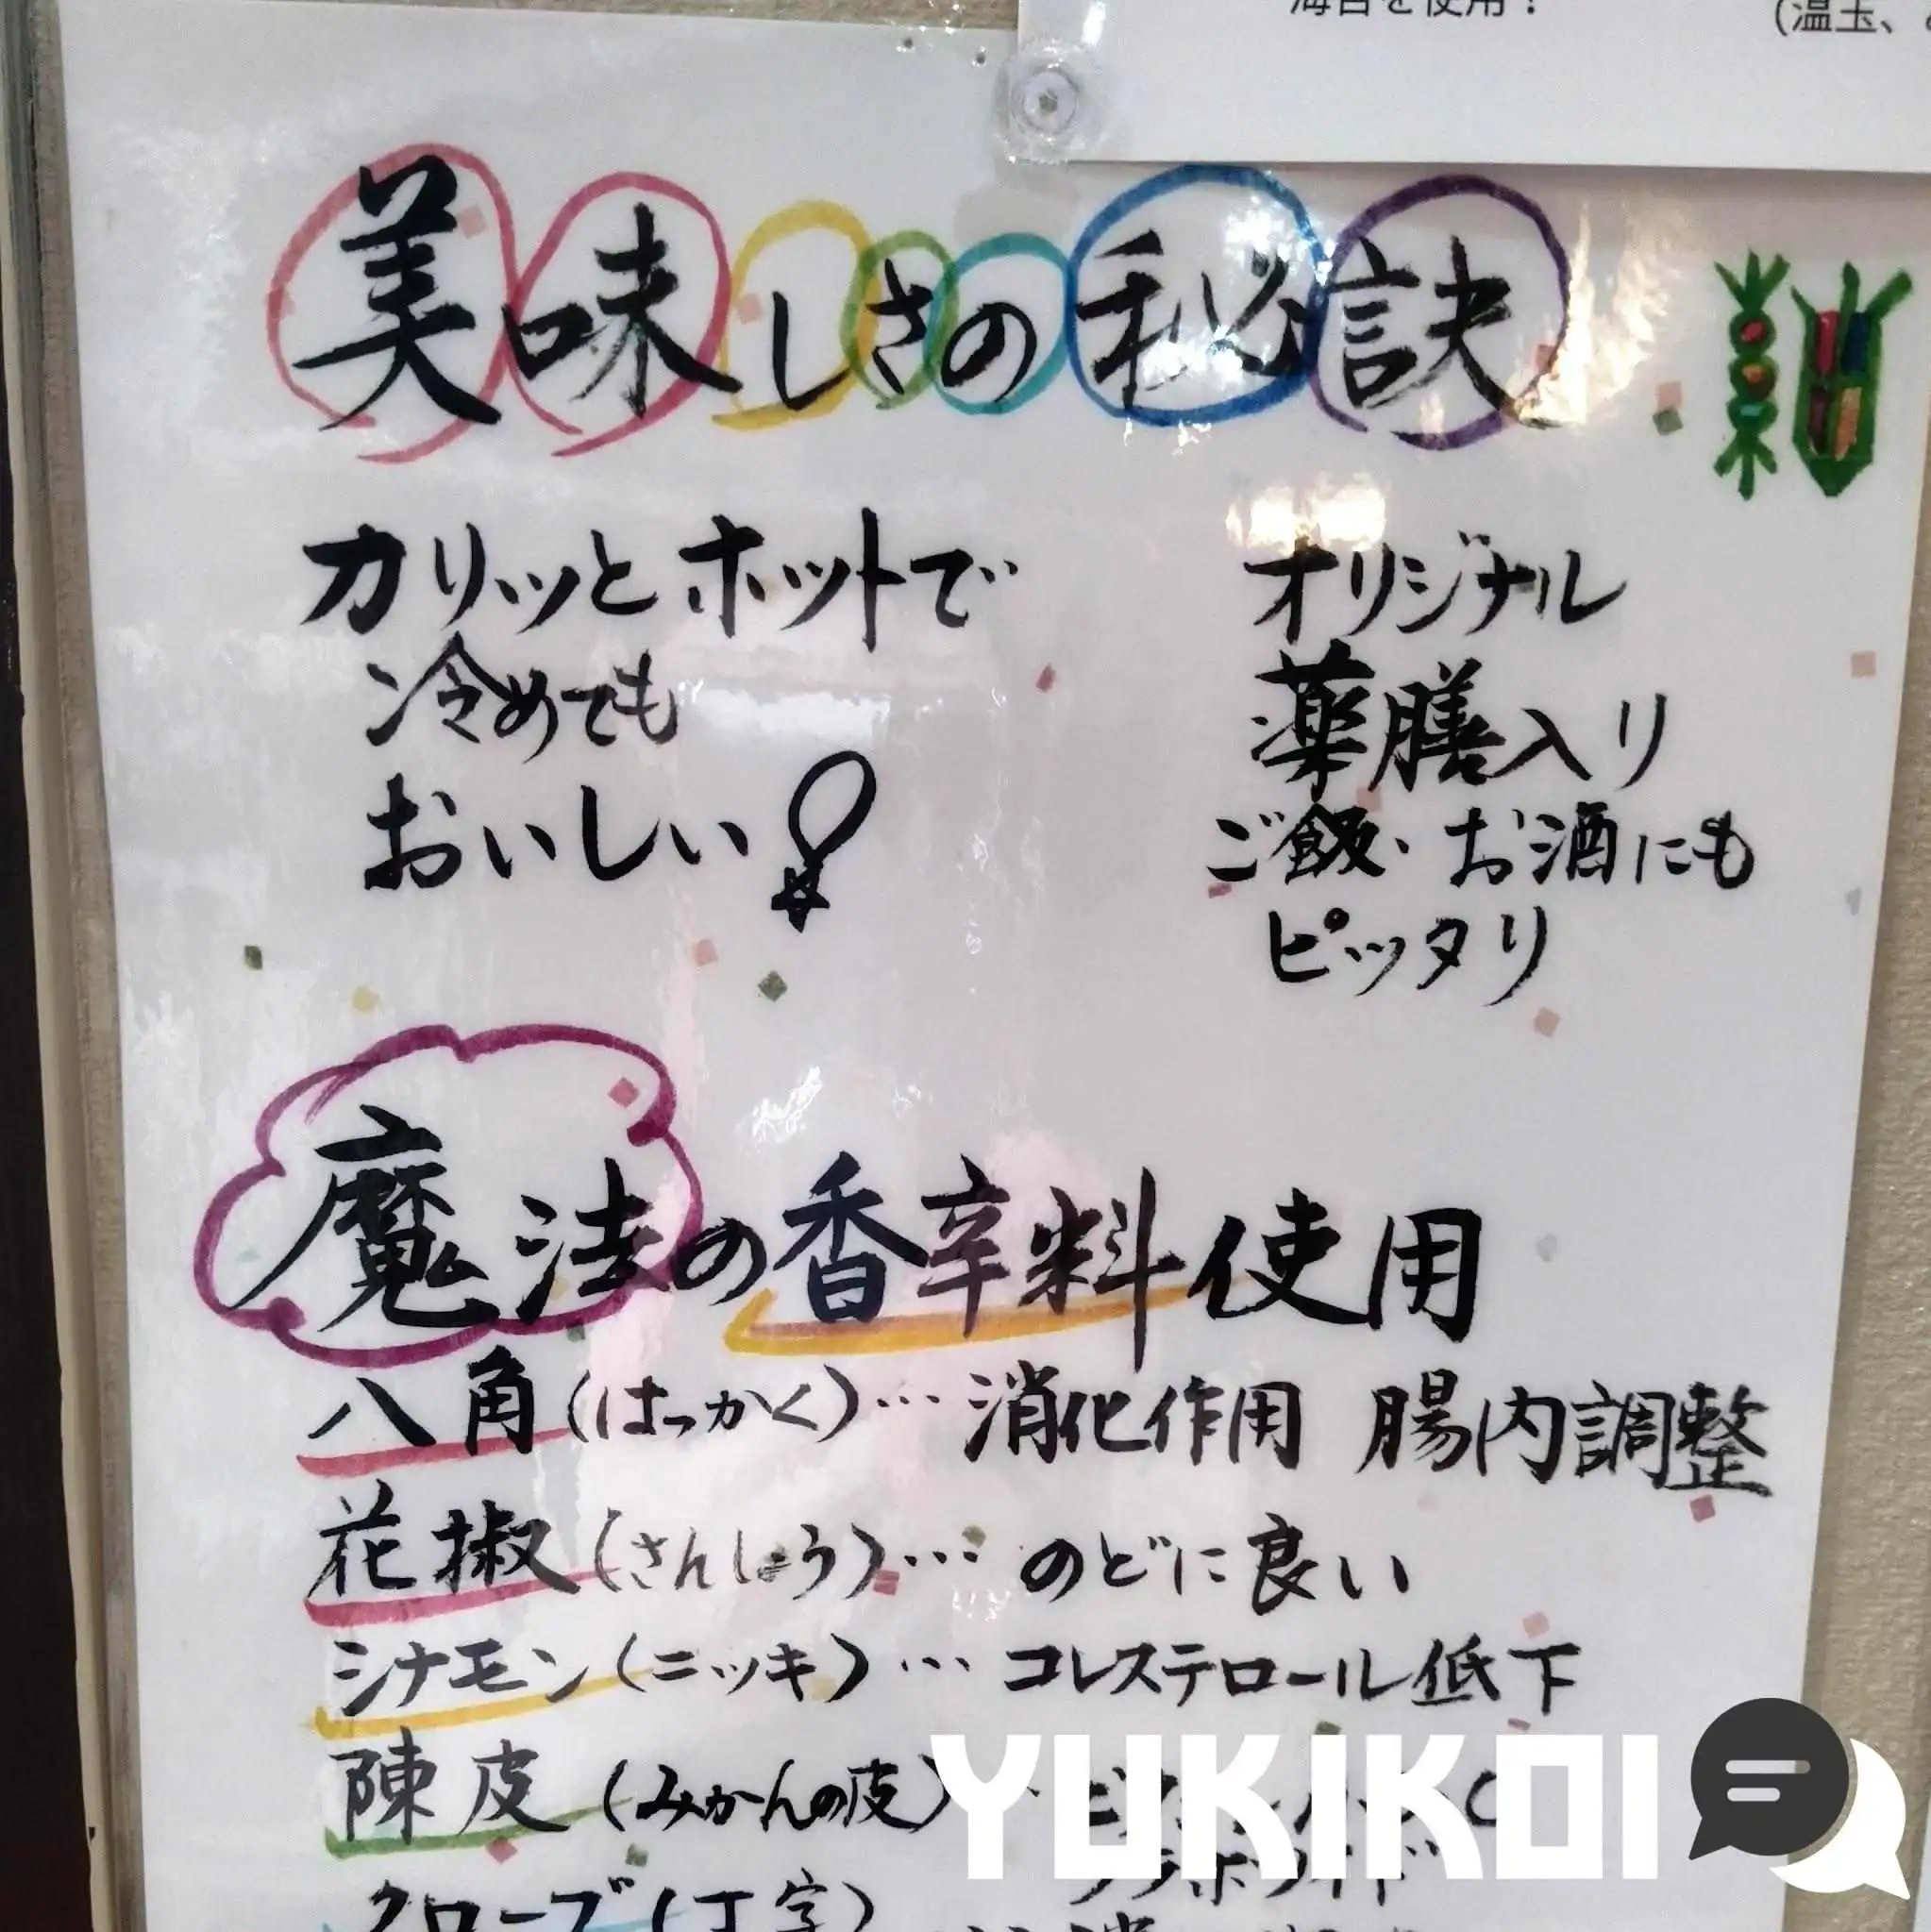 海苔を使用！
(温玉、
美味しさの秘訣
カリッとホットで
冷めても
おいしい！
オリジナル
薬膳入り
ご飯・お酒にも
ピッタリ
魔法の香辛料使用
八角(はっかく)…消化作用 腸内調整
花椒(さんしょう)…のどに良い
シナモン(ニッキ)…コレステロール低下
陳皮(みかんの皮)
クローブ(丁字)
YUKIKOI